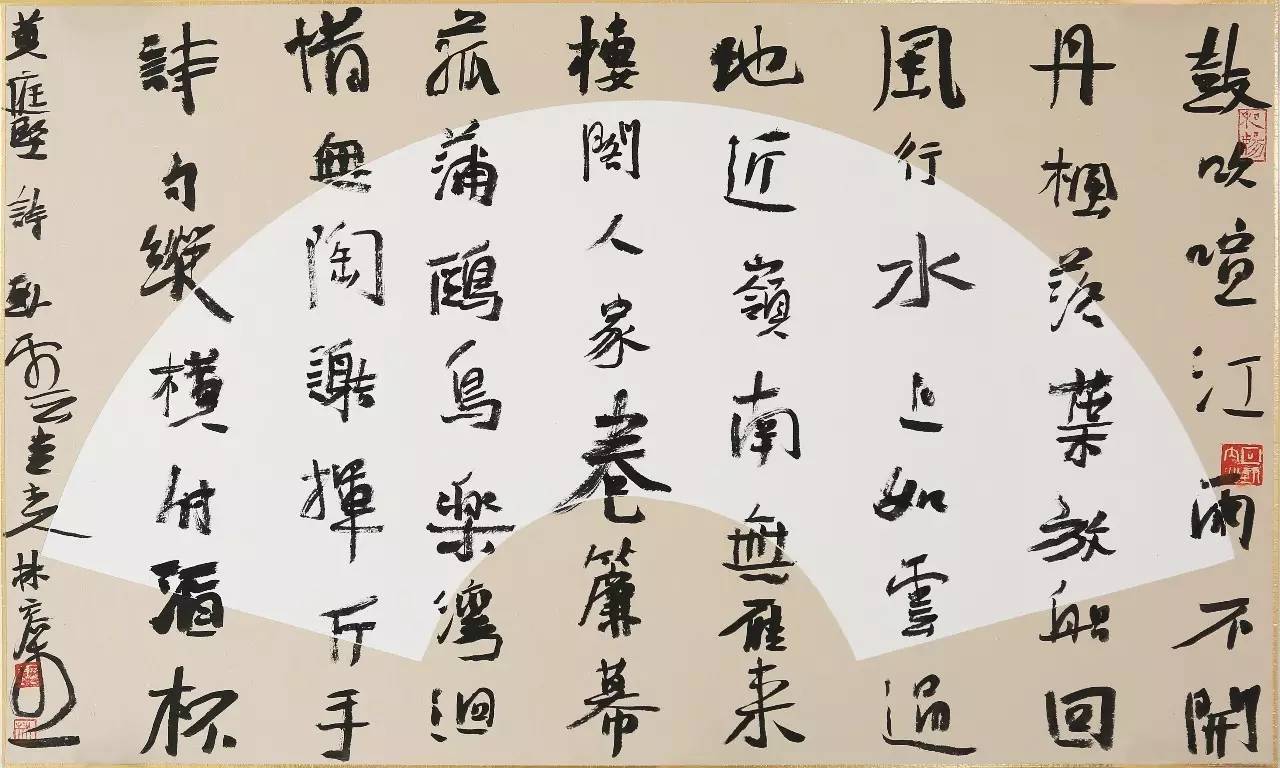 鼓吹喧江雨不開
丹楓落葉放船回
風行水上如雲過
地近嶺南無雁來
樓閣人家卷簾幕
菰蒲鷗鳥樂灣洄
惜無陶謝揮斤手
詩句縱橫付酒杯
黃庭堅詩 林